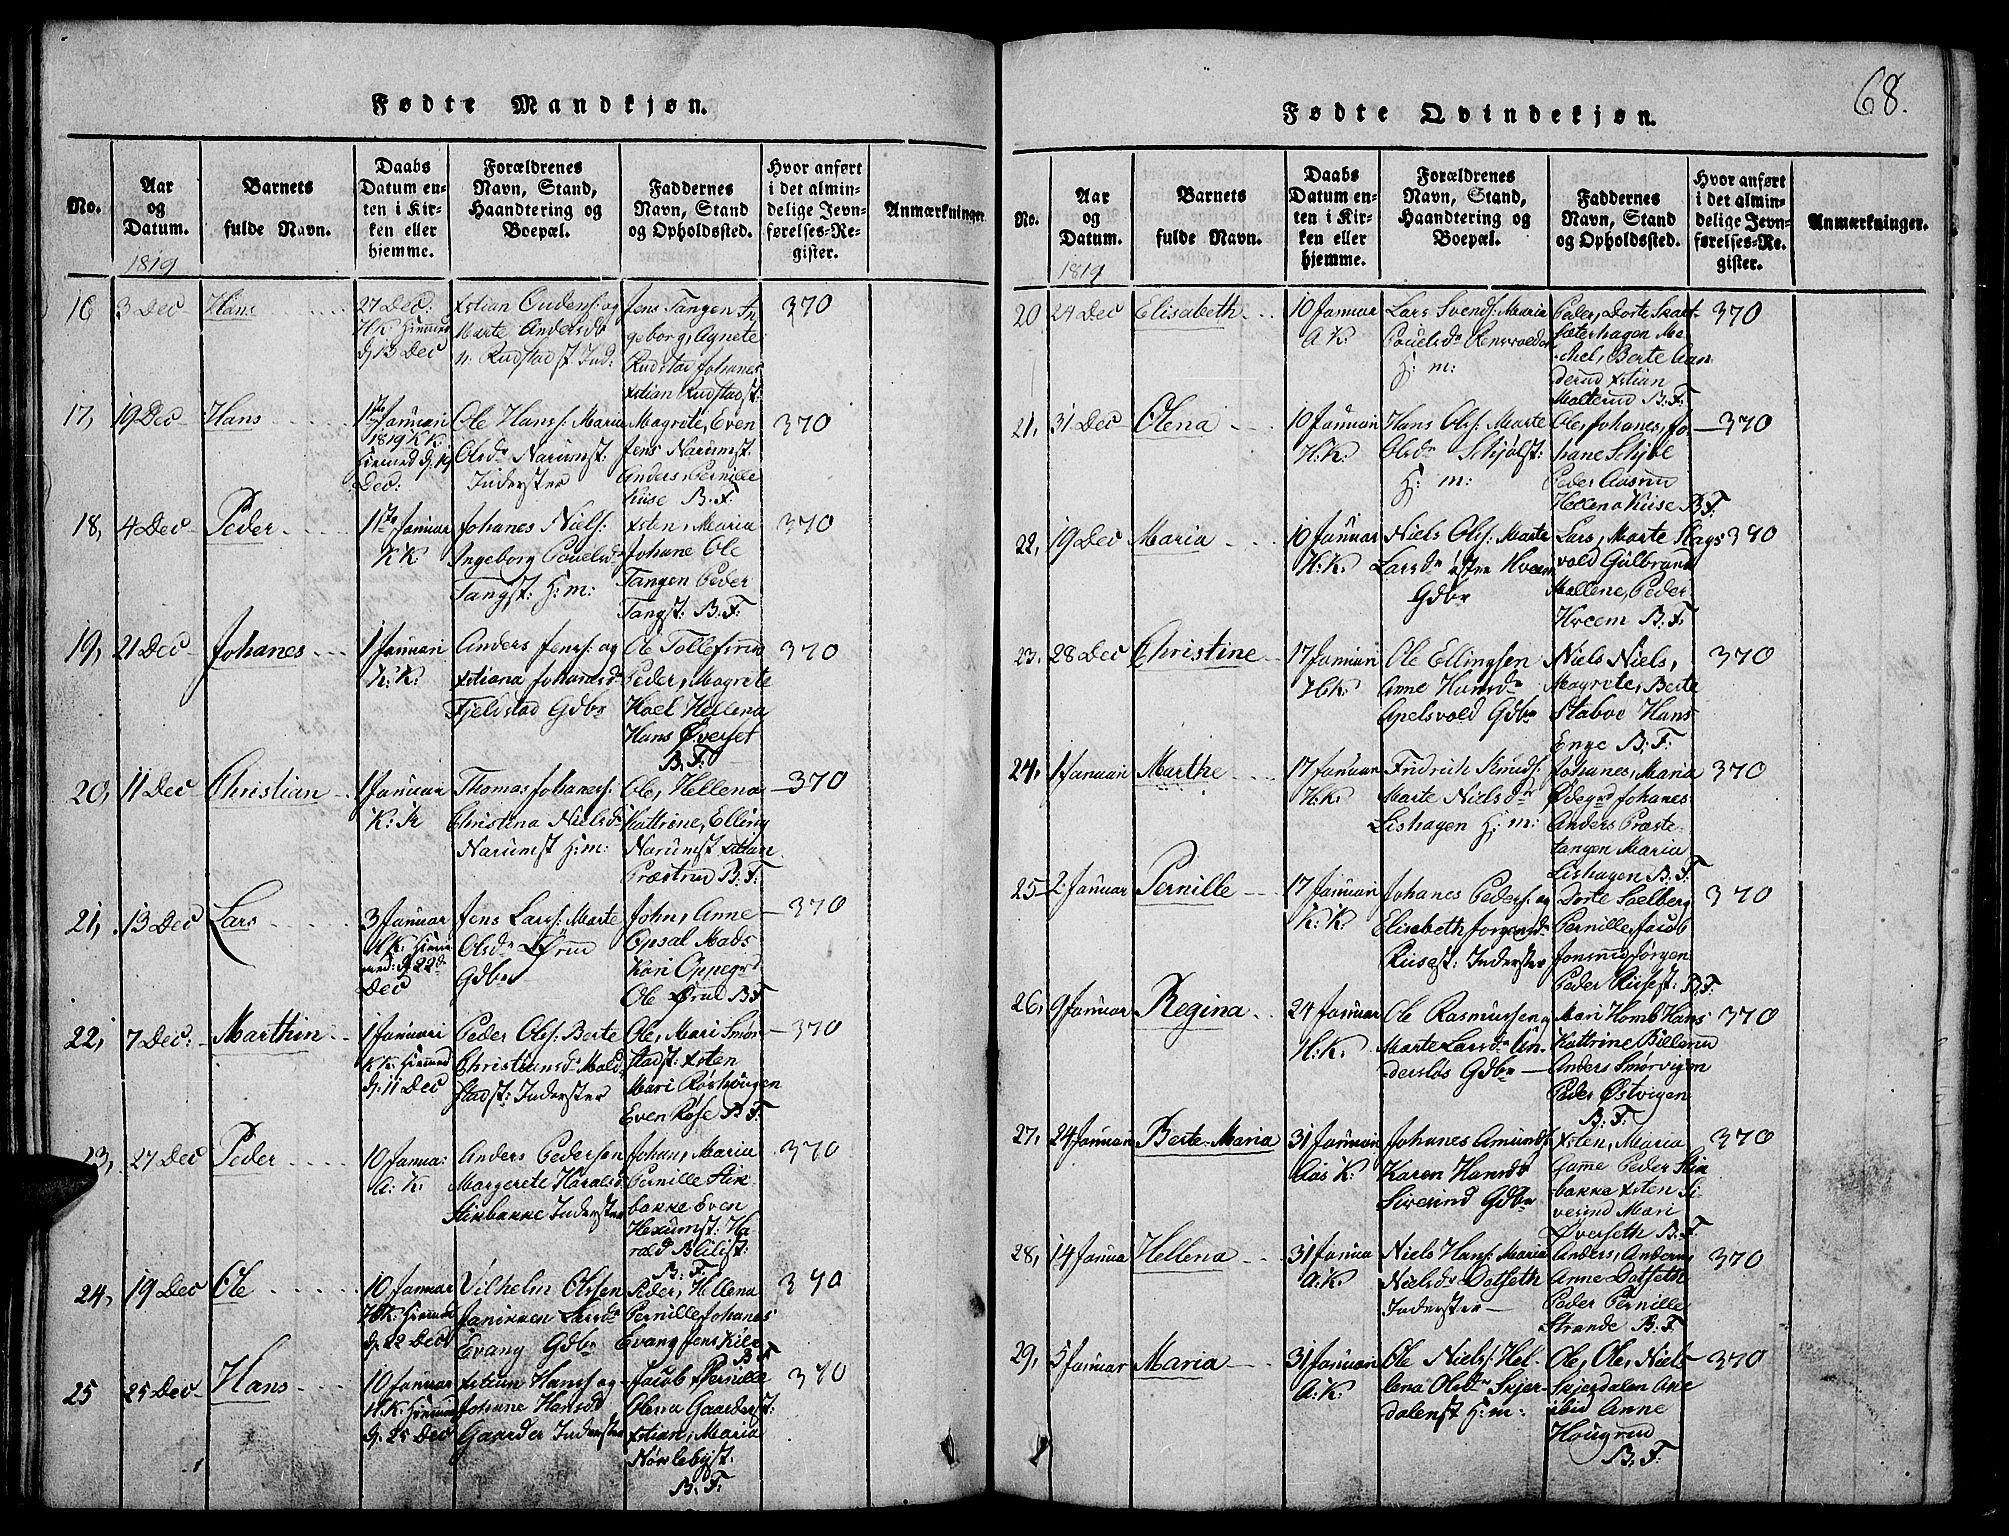 68.
Fødte Mandkjøn.
No.
Aar
og
Datum.
Barnets
fulde Navn.
Daabs
Datum en-
ten i Kir-
ken eller
hjemme.
Forældrenes
Navn, Stand,
Haandtering og
Boepæl.
Faddernes
Navn, Stand
og Opholdssted.
Hvor anført
i det almin-
delige Jevn-
førelses-Re-
gister.
Anmærkninger.
1819
16 3 Dec Hans
27 Dec:
H.K. Hiemmed
d. 13 Dec
xstian Oudens: og
Marte Andersdr
Rudstad st Ind:
Jens Tangen In
geborg, Agnete
Rudstad Johanes
xstian Rudstadst:
370
17, 19 Dec Hans
1ste Januari
1819 K K.
Hiemmed d. 19
Dec:
Ole Hanss: Maria
Olsdr Narumst:
Inderster
Magrete, Even
Jens Narumst.
Anders Pernille
Kise B. F.
370
18, 4 Dec Peder
1ste Januar
K K.
Johanes Niels:
Ingeborg Pouelsdr
Tangst: H: m:
xsten, Maria
Johane Ole
Tangen Peder
Tangst: B. F:
370
19, 21 Dec Johanes
1 Januari
K. K.
Anders Jenss: og
xstiana Johanesdr
Fjeldstad Gdbr
Ole Tollefsrud
Peder, Magrete
Hoel Hellena
Hans Øverset
B. F:
370
20, 11 Dec Christian
1 Januar
K: K
Thomas Johaness:
Christina Nielsdr
Narumst H: m:
Ole, Hellena
Kattrine, Elling
Narumst xstian
Præstrud B: F:
370
21, 13 Dec Lars
3 Januar
H.K. Hiem
med: d. 22de
Dec
Jens Larss: Marte
Olsdr Ørud
Gdbr
John, Anne
Opsal Mads
Kari Oppegrd
Ole Ørud B F
370
22, 7 Dec: Marthin
1 Januari
K K. Hiemmed
d: 11 Dec
Peder Olss: Berte
Christiansdr Mold
stadst: Inderster
Ole, Mari Smør
stadst: xsten
Mari Roshaugen
Even Rose B F:
370
23, 27 Dec Peder
10 Janua:
A: K.
Anders Pedersen
Margerete Haralsd
Stikbakke Inderster
Johan, Maria
Pernille Stik
bakke Even
Hexumst: Ha
rald Blilist:
B: F:
370
24, 19 Dec Ole
10 Januar
H.K. Hiemmed
d. 22 Dec
Vilhelm Olssen
Janikken Larsdr
Evang Gdbr
Peder, Hellena
Pernille Johanes
Evang Jens Kise
B F
370
25 25 Dec Hans
10 Januar
H.K. Hiemmed
d. 25 Dec
xstian Hanss: og
Johane Hansd
Gaarder Inderster
Jacob Pernille
Olena Gaarderst:
xstian, Maria
Nørlebyst.
B. F.
370
Fødte Qvindekjøn.
No.
Aar
og
Datum.
Barnets
fulde Navn.
Daabs
Datum en-
ten i Kir-
ken eller
hjemme.
Forældrenes
Navn, Stand,
Haandtering og
Boepæl.
Faddernes
Navn, Stand
og Opholdssted.
Hvor anført
i det almin-
delige Jevn-
førelses-Re-
gister.
Anmærkninger.
1819
20 24 Dec Elisabeth
10 Januar
A K:
Lars Svends: Maria
Pouelsdr Rensvolden
H: m:
Peder, Dorte Skatt
Sæterhagen Ma
chel, Berte Aan
derud xstian
Malterud B. F.
370
21, 31 Dec Olena
10 Januari
H. K:
Hans Olss: Marte
Olsdr Schjølst:
H: m:
Ole, Johanes, Jo
hane Schjøl
Peder Aasrud
Hellena Kiise B F:
370
22, 19 Dec Maria
10 Januar
H. K.
Niels Olss: Marte
Larsdr østre Hveem
Gdbr
Lars, Marte Slags
vold Gulbrand
Mallene, Peder
Hveem B. F.
370
23. 28 Dec Christine
17 Januari
H.K.
Ole Ellingsen
Anne Hansdr
Apelsvold Gdbr
Niels Niels,
Magrete, Berte
Staboe Hans
Enge B. F:
370
24, 1 Januari Marthe
17 Januar
H: K.
Fridrich Knuds:
Marte Nielsdr
Lishagen H: m:
Johanes, Maria
Ødegrd Johanes
Anders Præste-
tangen Maria
Lishagen B. F.
370
25 2 Januar Pernille
17 Januar
K: K.
Johanes Peders: og
Elisabeth Jorgensdr
Ruusst: Inderster
Dorte Soelberg
Pernille Jacob
Jonsrud Jørgen
Peder Ruusst: B. F.
370
26, 9 Januar Regina
24 Januar
H: K.
Ole Rasmussen og
Marte Larsdr Un-
derslos Gdbr
Mari Homb Hans
Kattrine Billerud
Anders Smørvigen
Peder Østvigen
B: F:
370
27, 24 Januari Berte-Maria
31 Januari
Aas K.
Johanes Amunds:
Karen Hansdr
Sivesind Gdbr
xsten, Maria
Game Peder Stik
bakke xsten Si
vesind Mari
Øverseth B. F.
370
28, 14 Janua Hellena
31 Janua
A: K.
Niels Hans: Maria
Nielsdr Dotseth
Inderster
Anders, Anders
Anne Dotseth
Peder Pernille
Strande B. F.
370
29, 5 Januar Maria
31 Januari
A: K.
Ole Niels: Hel-
lena Olsdr Skjer-
dalenst H: m:
Ole, Ole, Niels
Skjerdalen Ane
ibid Anne
Hougrud
B. F.
370